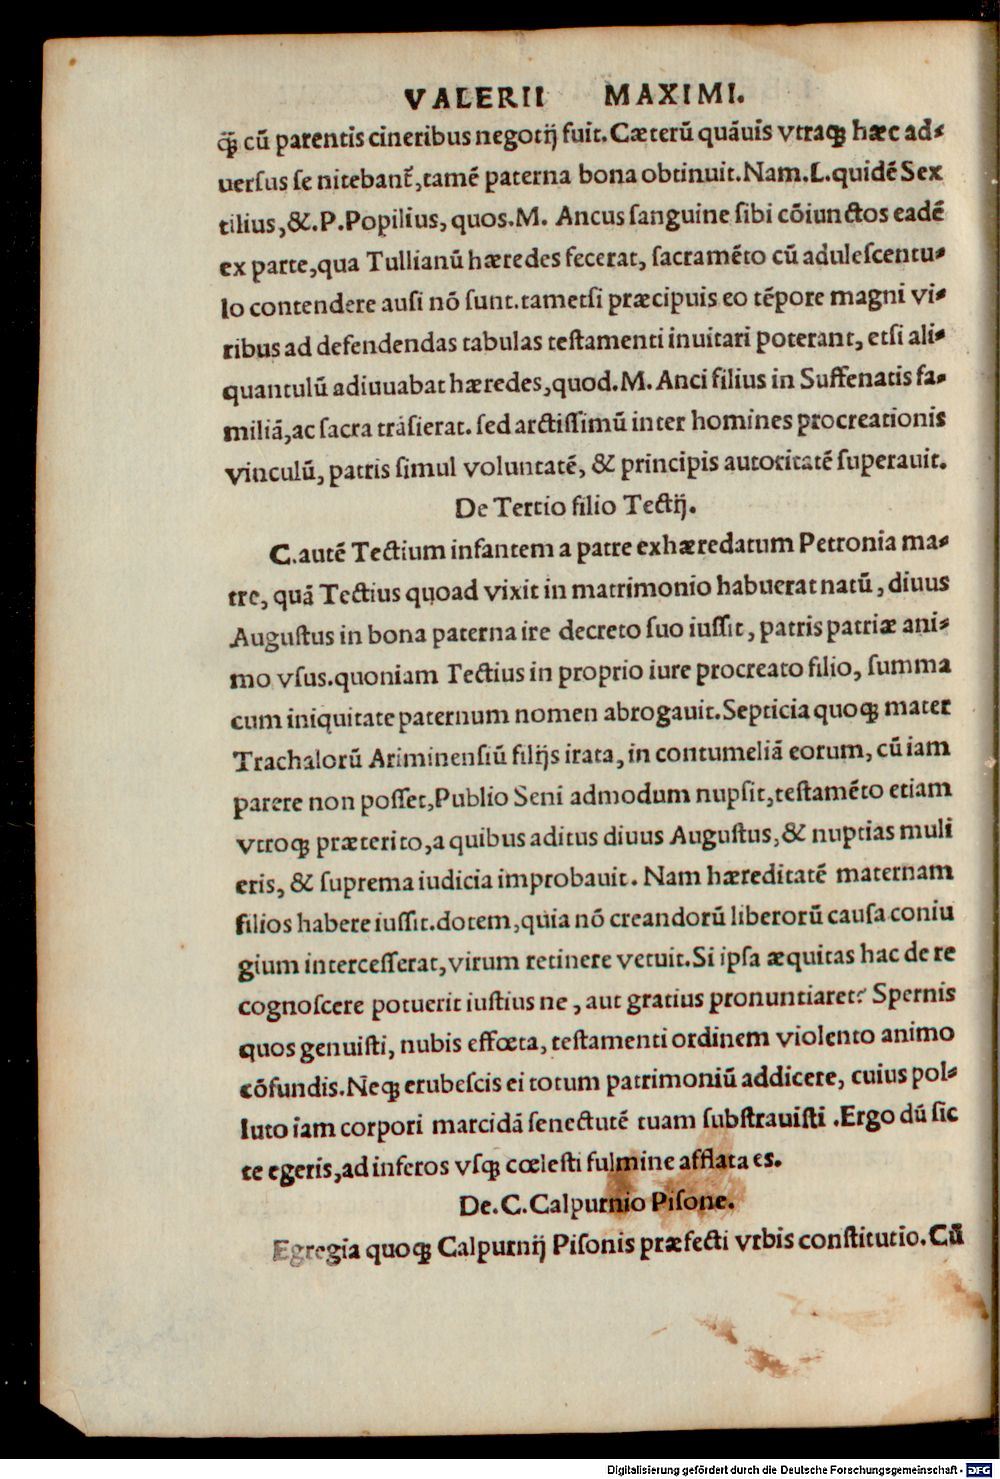 VALERII MAXIMI.
q̃ꝫ cũ parentis cineribus negotĳ fuit. Cæterũ quãuis vtraqꝫ hæc ad-
uersus se nitebant̃, tamẽ paterna bona obtinuit. Nam. L. quidẽ Sex
tilius, &. P. Popilius, quos. M. Ancus sanguine sibi cõiunctos eadẽ
ex parte, qua Tullianũ hæredes fecerat, sacramẽto cũ adulescentu-
lo contendere ausi nõ sunt. tametsi præcipuis eo tẽpore magni vi-
ribus ad defendendas tabulas testamenti inuitari poterant, etsi ali-
quantulũ adiuuabat hæredes, quod. M. Anci filius in Suffenatis fa-
miliã, ac sacra trãsierat. sed arctissimũ inter homines procreationis
vinculũ, patris simul voluntatẽ, & principis autoritatẽ superauit.
De Tertio filio Tectĳ.
C. autẽ Tectium infantem a patre exhæredatum Petronia ma-
tre, quã Tectius quoad vixit in matrimonio habuerat natũ, diuus
Augustus in bona paterna ire decreto suo iussit, patris patriæ ani-
mo vsus. quoniam Tectius in proprio iure procreato filio, summa
cum iniquitate paternum nomen abrogauit. Septicia quoqꝫ mater
Trachalorũ Ariminensiũ filĳs irata, in contumeliã eorum, cũ iam
parere non posset, Publio Seni admodum nupsit, testamẽto etiam
vtroqꝫ præterito, a quibus aditus diuus Augustus, & nuptias muli
eris, & suprema iudicia improbauit. Nam hæreditatẽ maternam
filios habere iussit. dotem, quia nõ creandorũ liberorũ causa coniu
gium intercesserat, virum retinere vetuit. Si ipsa æquitas hac de re
cognoscere potuerit iustius ne, aut gratius pronuntiaret? Spernis
quos genuisti, nubis effœta, testamenti ordinem violento animo
cõfundis. Neqꝫ erubescis ei totum patrimoniũ addicere, cuius pol-
luto iam corpori marcidã senectutẽ tuam substrauisti. Ergo dũ sic
te egeris, ad inferos vsqꝫ cœlesti fulmine afflata es.
De. C. Calpurnio Pisone.
Egregia quoqꝫ Calpurnĳ Pisonis præfecti vrbis constitutio. Cũ
Digitalisierung gefördert durch die Deutsche Forschungsgemeinschaft - DFG